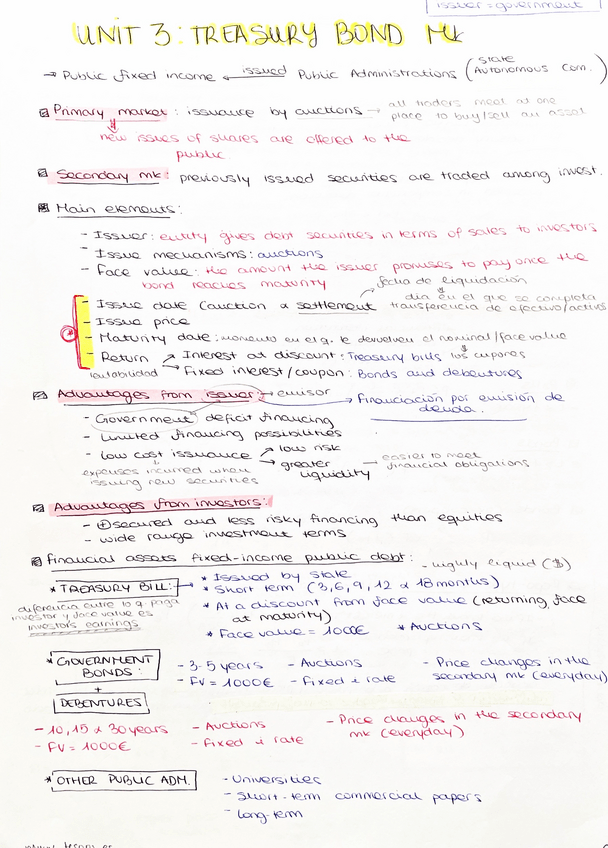 issuer = government
UNIT 3: TREASURY BOND Mk
→ Public fixed income ← issued Public Administrations (State Autonomous Com.)
Primary market: issuance by auctions → all traders meet at one place to buy/sell an asset
new issues of shares are offered to the
public
Secondary mk: previously issued securities are traded among invest.
Main elements:
- Issuer: entity gives debt securities in terms of sales to investors
- Issue mechanisms: auctions
- Face value: the amount the issuer promises to pay once the
bond reaches maturity
fecha de liquidación
- Issue date (auction & settlement
día en el que se completa
transferencia de efectivo/activos
- Issue price
- Maturity date: momento en el q. te devuelven el nominal/face value
- Return → Interest at discount: Treasury bills
los cupones
rentabilidad → Fixed interest/coupon: Bonds and debentures
Advantages from issuer: → emisor
→ Financiación por emisión de
deuda.
- Government deficit financing
- Limited financing possibilities
- low cost issuance → low risk
→ greater liquidity → easier to meet financial obligations
expenses incurred when
issuing new securities
Advantages from investors:
- ⊕ secured and less risky financing than equities
- wide range investment terms
Financial assets fixed-income public debt:
- highly liquid ($)
* TREASURY BILL: → * Issued by State
* Short term (3,6,9,12 & 18 months)
* At a discount from face value (returning face
at maturity)
* Face value = 1000€ * Auctions
diferencia entre lo q. paga
investor y face value es
investors earnings
* GOVERNMENT
BONDS:
- 3-5 years - Auctions - Price changes in the
- FV = 1000€ - Fixed i rate secondary mk (everyday)
+
DEBENTURES
- 10, 15 & 30 years - Auctions - Price changes in the secondary
- FV = 1000€ - Fixed i rate mk (everyday)
* OTHER PUBLIC ADM.
- Universities
- Short-term commercial papers
- Long-term